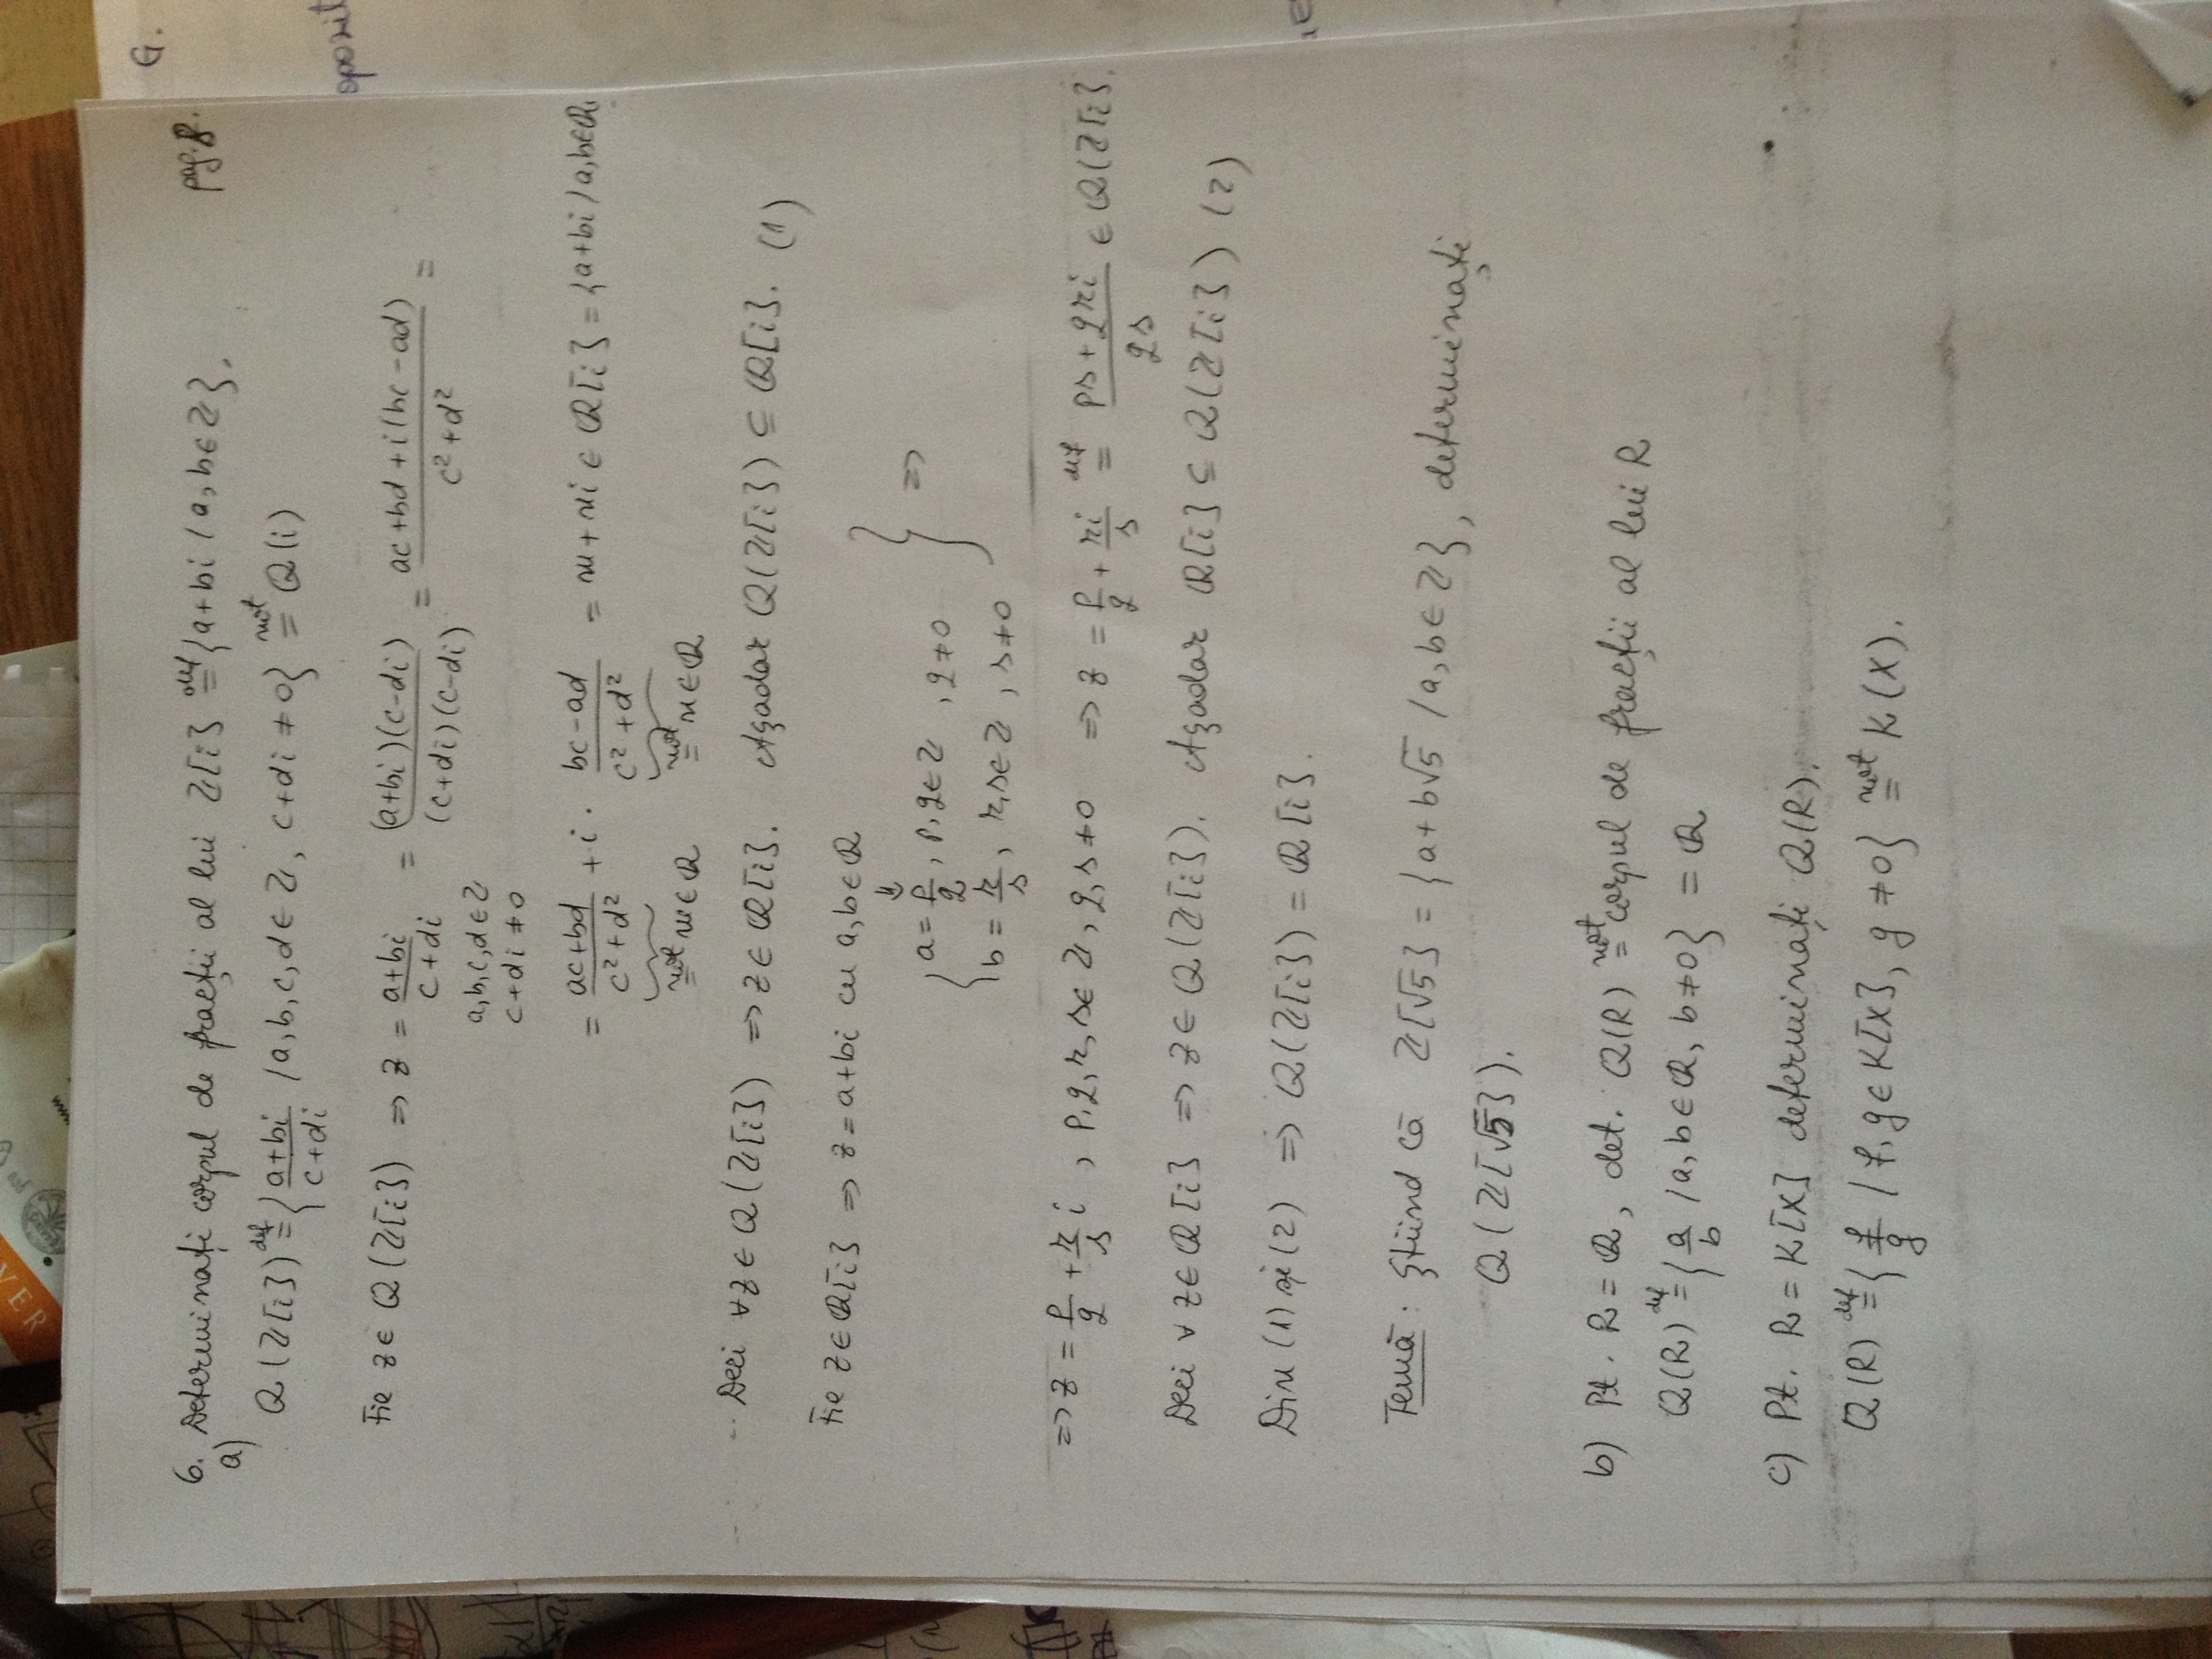 VER
G.
6. Determinați corpul de fracții al lui ℤ[i] def= {a+bi / a, b ∈ ℤ}. pag. 8.
a)
Q(ℤ[i]) def= {(a+bi)/(c+di) / a, b, c, d ∈ ℤ, c+di ≠ 0} not= Q(i)
opozit
Fie z ∈ Q(ℤ[i]) ⇒ z = (a+bi)/(c+di) = ((a+bi)(c-di))/((c+di)(c-di)) = (ac+bd+i(bc-ad))/(c²+d²) =
a, b, c, d ∈ ℤ
c+di ≠ 0
= (ac+bd)/(c²+d²) + i · (bc-ad)/(c²+d²) = m+ni ∈ ℚ[i] = {a+bi / a, b ∈ ℚ
not= m ∈ ℚ not= n ∈ ℚ
Deci ∀z ∈ Q(ℤ[i]) ⇒ z ∈ ℚ[i]. Așadar Q(ℤ[i]) ⊆ ℚ[i]. (1)
Fie z ∈ ℚ[i] ⇒ z = a+bi cu a, b ∈ ℚ
⇓
{ a = p/q, p, q ∈ ℤ, q ≠ 0
b = r/s, r, s ∈ ℤ, s ≠ 0 } ⇒
⇒ z = p/q + r/s i, p, q, r, s ∈ ℤ, q, s ≠ 0 ⇒ z = p/q + ri/s def= (ps+qri)/(qs) ∈ Q(ℤ[i].
Deci ∀ z ∈ ℚ[i] ⇒ z ∈ Q(ℤ[i]). Așadar ℚ[i] ⊆ Q(ℤ[i]) (2)
Din (1) și (2) ⇒ Q(ℤ[i]) = ℚ[i].
Temă: Știind că ℤ[√5] = {a+b√5 / a, b ∈ ℤ}, determinați
Q(ℤ[√5]).
b) Pt. R = ℚ, det. Q(R) not= corpul de fracții al lui R
Q(R) def= {a/b / a, b ∈ ℚ, b ≠ 0} = ℚ
c) Pt. R = K[X] determinați Q(R).
Q(R) def= {f/g / f, g ∈ K[X], g ≠ 0} not= K(X).